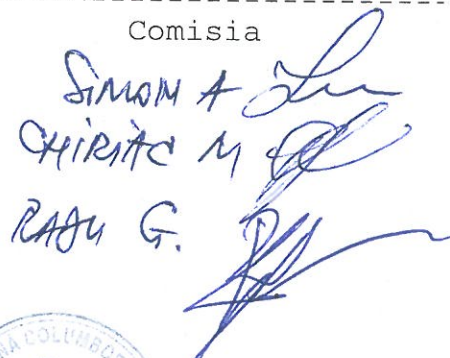 Comisia
SIMON A
CHIRIAC M
RADU G.